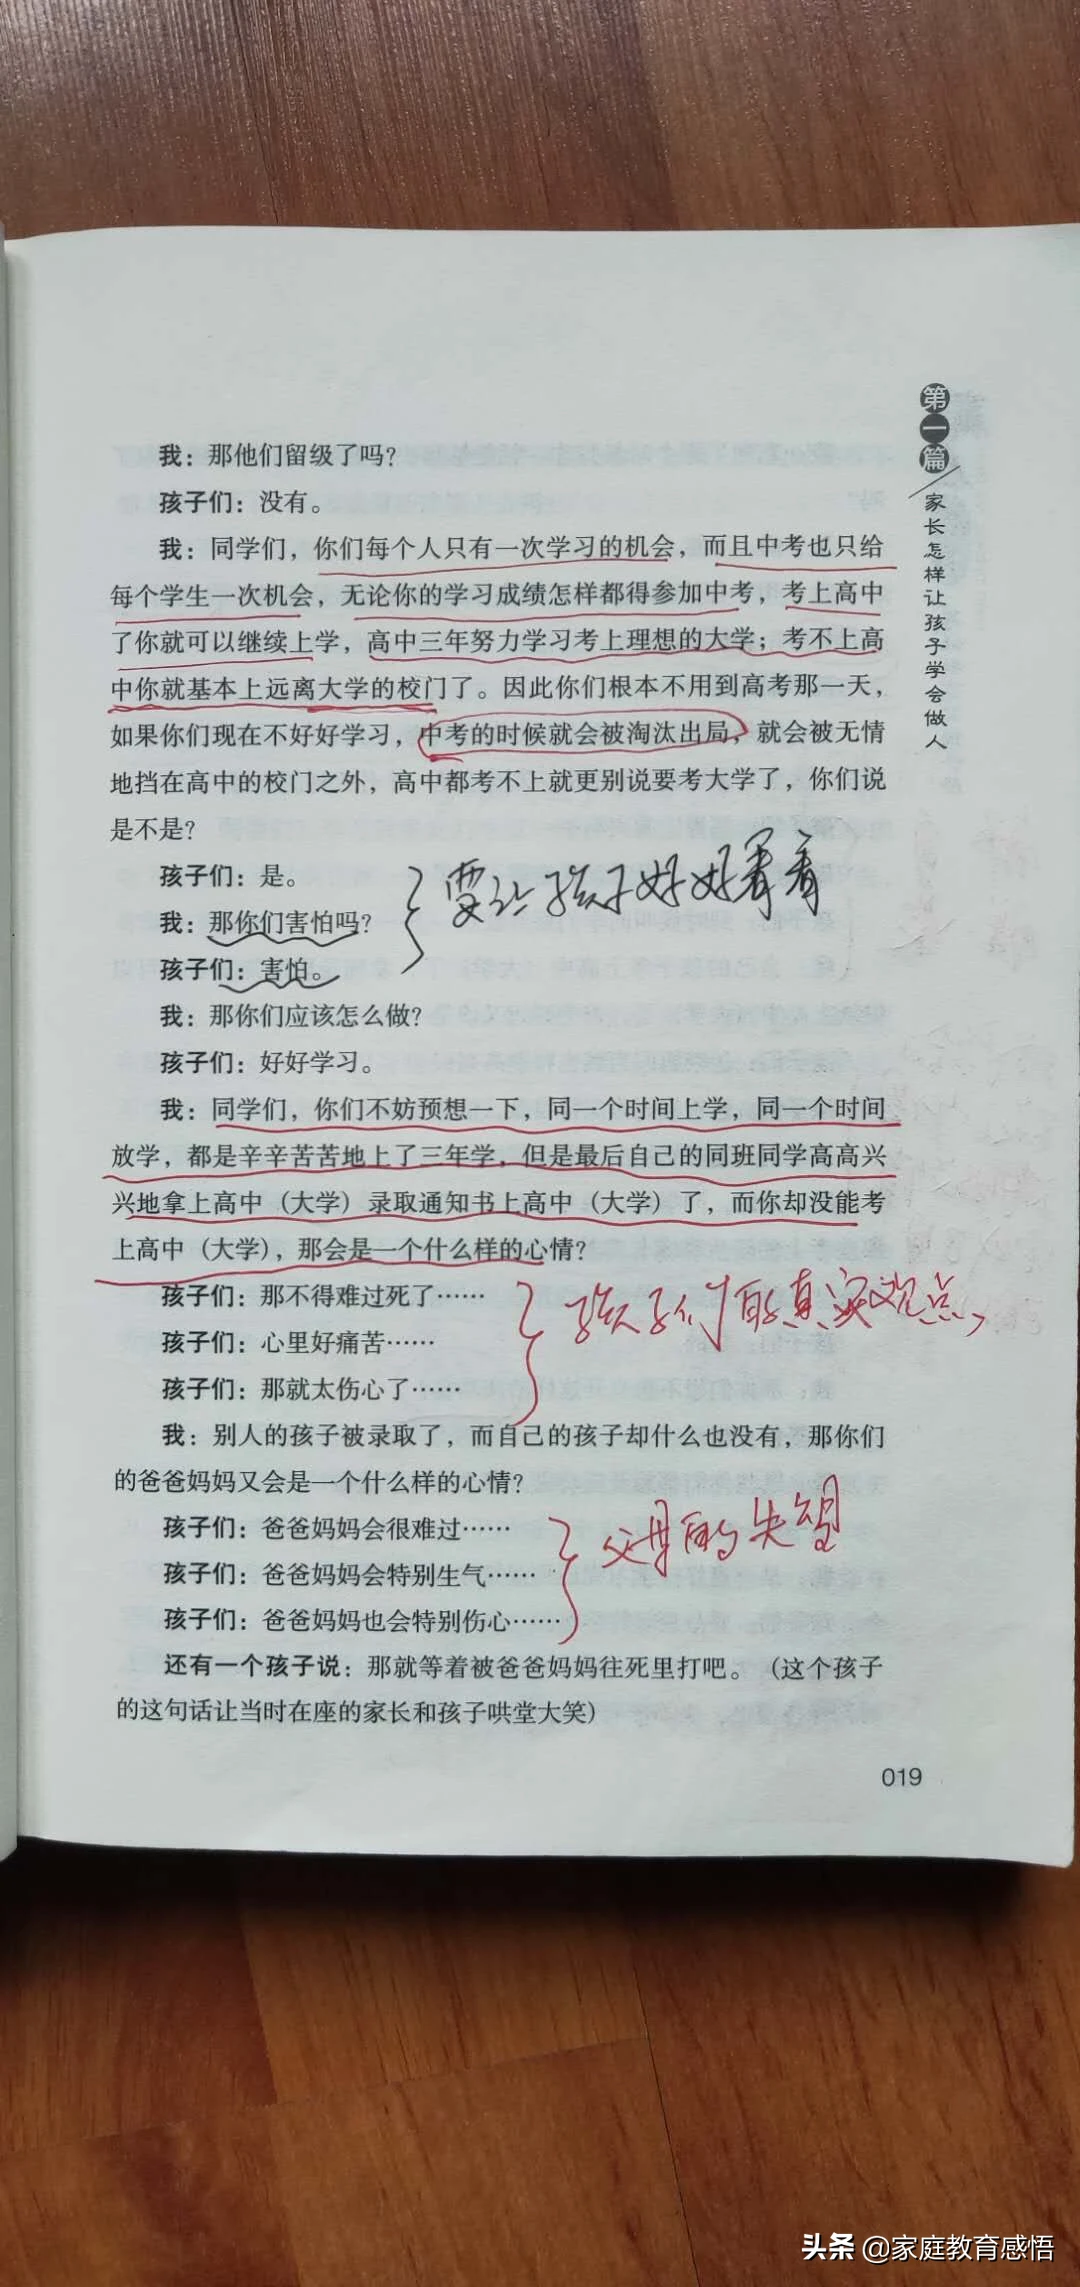 第一篇
家长怎样让孩子学会做人
我：那他们留级了吗？
孩子们：没有。
我：同学们，你们每个人只有一次学习的机会，而且中考也只给
每个学生一次机会，无论你的学习成绩怎样都得参加中考，考上高中
了你就可以继续上学，高中三年努力学习考上理想的大学；考不上高
中你就基本上远离大学的校门了。因此你们根本不用到高考那一天，
如果你们现在不好好学习，中考的时候就会被淘汰出局，就会被无情
地挡在高中的校门之外，高中都考不上就更别说要考大学了，你们说
是不是？
孩子们：是。
要让孩子好好看看
我：那你们害怕吗？
孩子们：害怕。
我：那你们应该怎么做？
孩子们：好好学习。
我：同学们，你们不妨预想一下，同一个时间上学，同一个时间
放学，都是辛辛苦苦地上了三年学，但是最后自己的同班同学高高兴
兴地拿上高中（大学）录取通知书上高中（大学）了，而你却没能考
上高中（大学），那会是一个什么样的心情？
孩子们：那不得难过死了……
孩子们的真实观点，
孩子们：心里好痛苦……
孩子们：那就太伤心了……
我：别人的孩子被录取了，而自己的孩子却什么也没有，那你们
的爸爸妈妈又会是一个什么样的心情？
孩子们：爸爸妈妈会很难过……
父母的失望
孩子们：爸爸妈妈会特别生气……
孩子们：爸爸妈妈也会特别伤心……
还有一个孩子说：那就等着被爸爸妈妈往死里打吧。（这个孩子
的这句话让当时在座的家长和孩子哄堂大笑）
019
头条 @家庭教育感悟